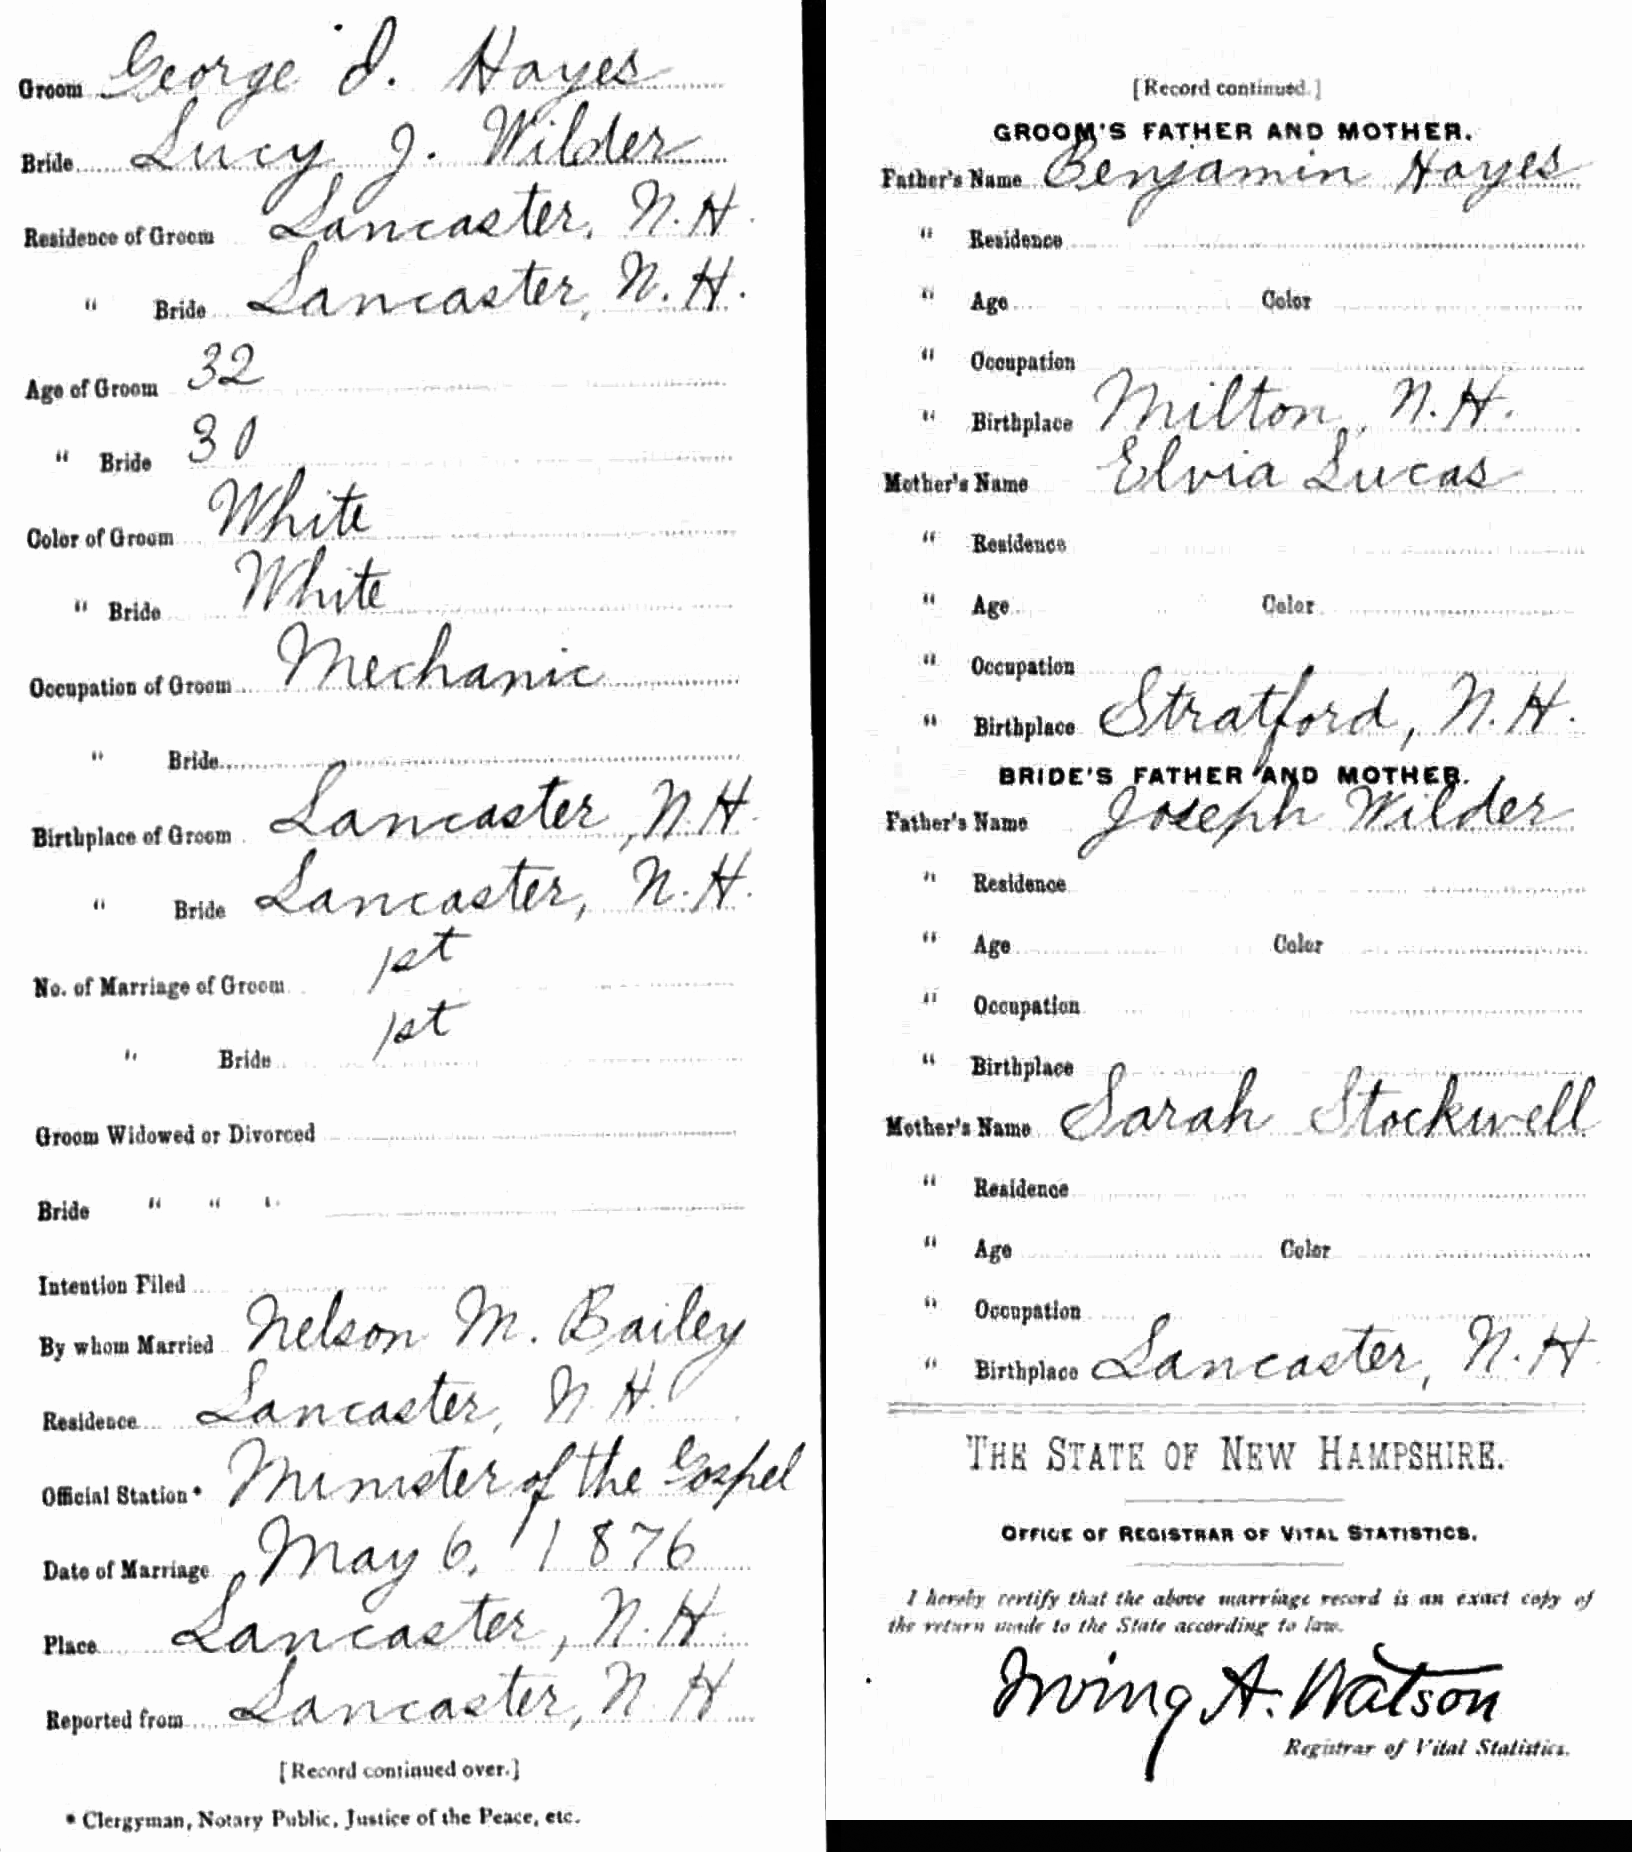 Groom George I. Hayes
Bride Lucy J. Wilder
Residence of Groom Lancaster, N.H.
" Bride Lancaster, N.H.
Age of Groom 32
" Bride 30
Color of Groom White
" Bride White
Occupation of Groom Mechanic
" Bride
Birthplace of Groom Lancaster, N.H.
" Bride Lancaster, N.H.
No. of Marriage of Groom 1st
" Bride 1st
Groom Widowed or Divorced
Bride " " "
Intention Filed
By whom Married Nelson M. Bailey
Residence Lancaster, N.H.
Official Station* Minister of the Gospel
Date of Marriage May 6, 1876
Place Lancaster, N.H.
Reported from Lancaster, N H
[Record continued over.]
* Clergyman, Notary Public, Justice of the Peace, etc.
[Record continued.]
GROOM'S FATHER AND MOTHER.
Father's Name Benjamin Hayes
" Residence
" Age Color
" Occupation
" Birthplace Milton, N.H.
Mother's Name Elvia Lucas
" Residence
" Age Color
" Occupation
" Birthplace Stratford, N.H.
BRIDE'S FATHER AND MOTHER.
Father's Name Joseph Wilder
" Residence
" Age Color
" Occupation
" Birthplace
Mother's Name Sarah Stockwell
" Residence
" Age Color
" Occupation
" Birthplace Lancaster, N.H.
THE STATE OF NEW HAMPSHIRE.
OFFICE OF REGISTRAR OF VITAL STATISTICS.
I hereby certify that the above marriage record is an exact copy of
the return made to the State according to law.
Irving A. Watson
Registrar of Vital Statistics.